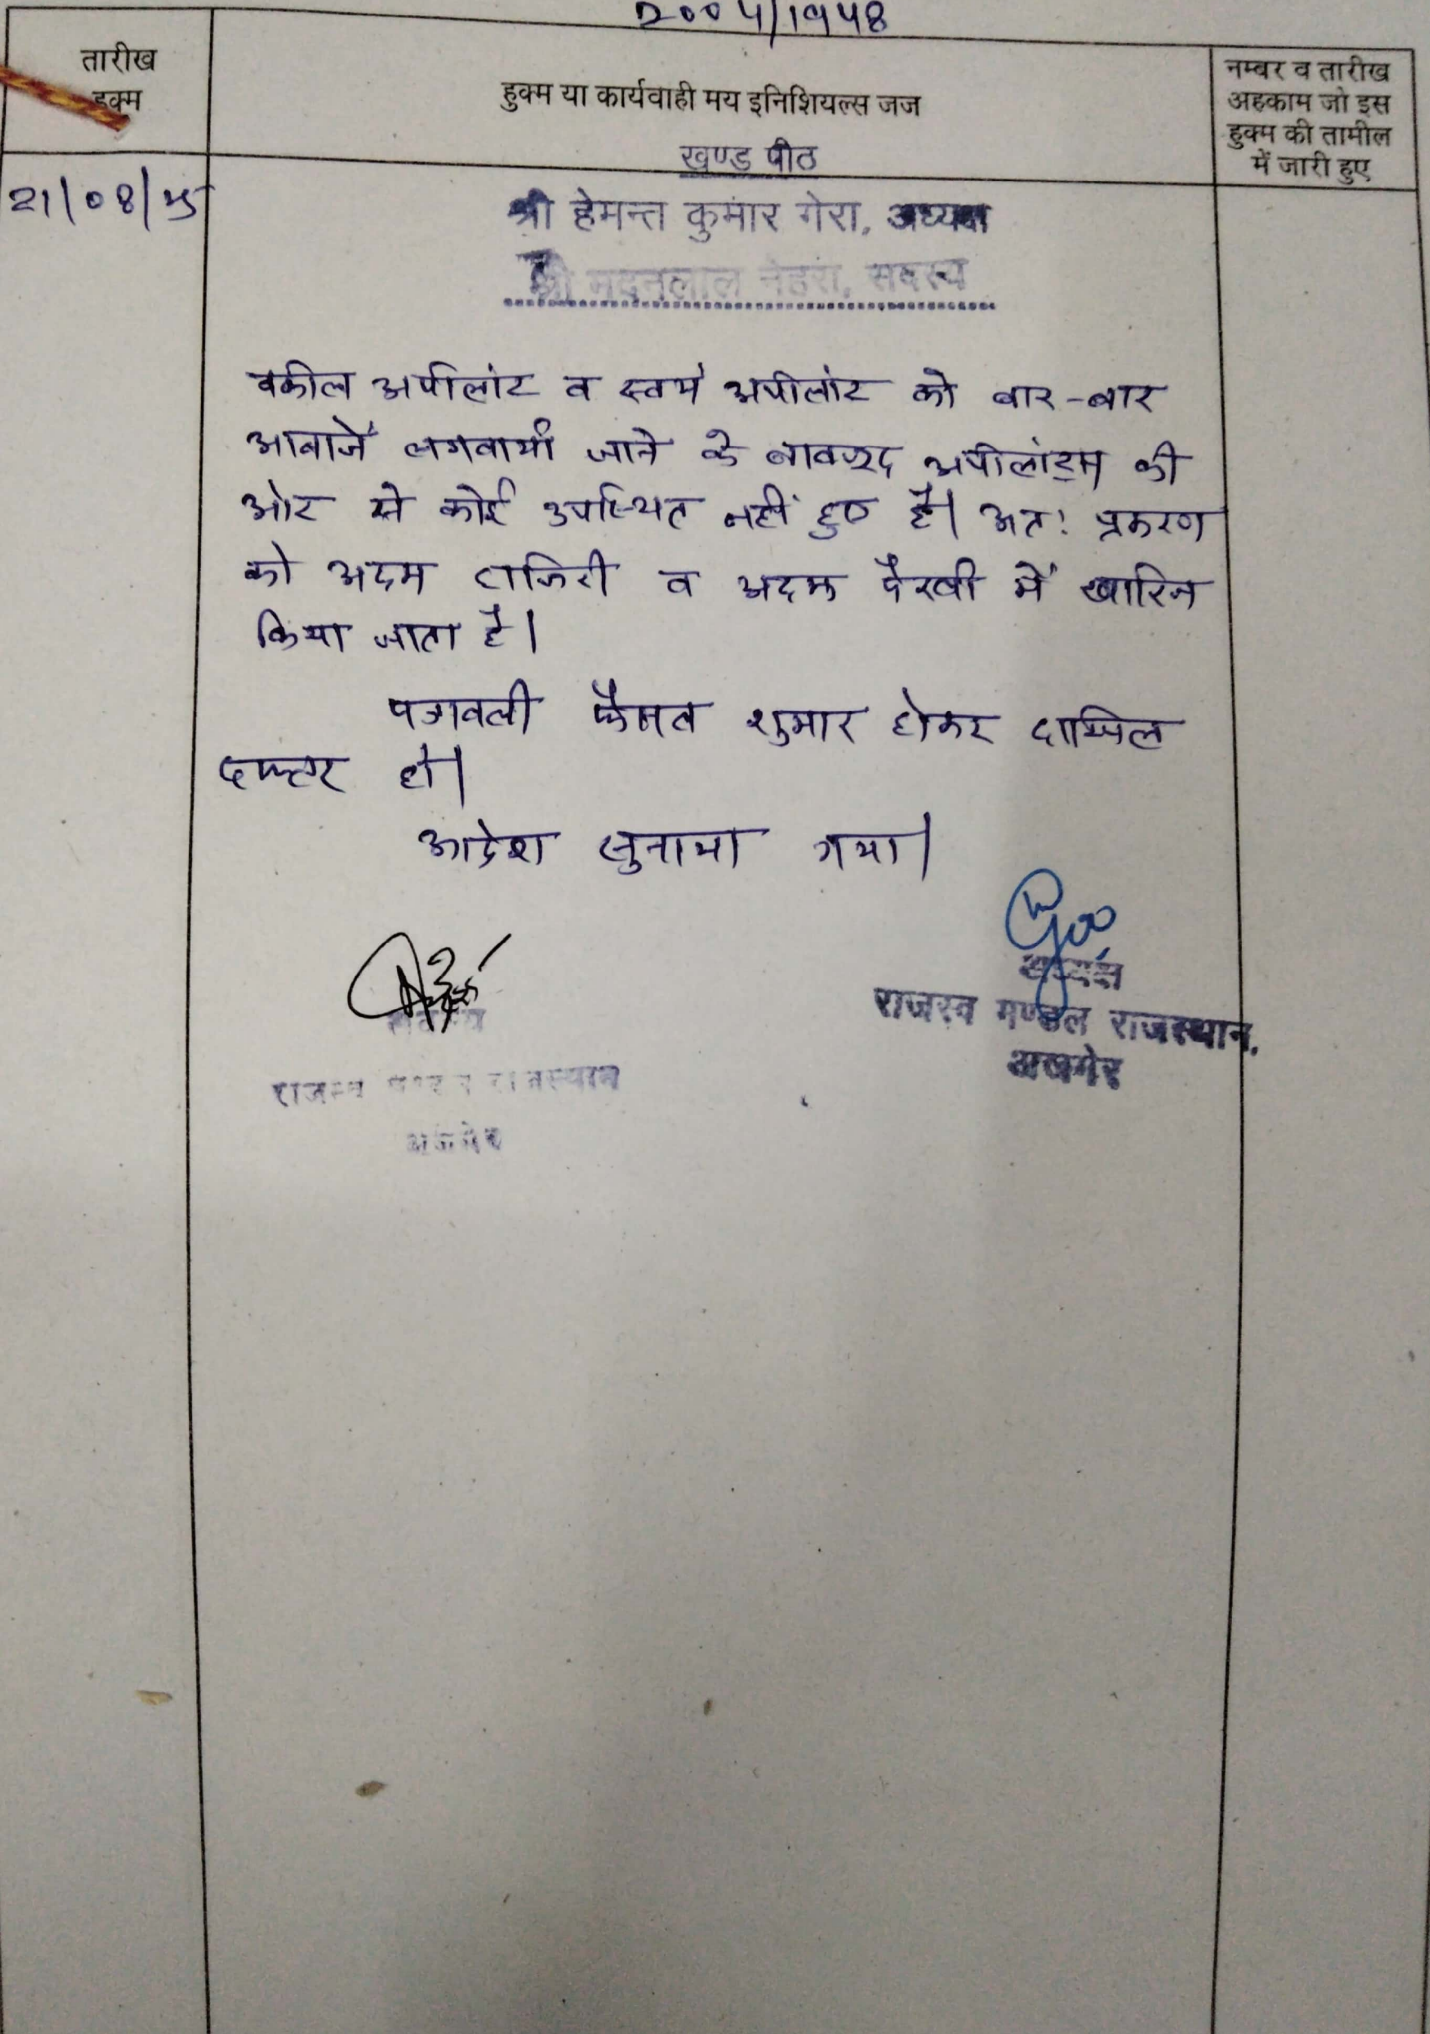 2004/1948
तारीख
हुक्म
हुक्म या कार्यवाही मय इनिशियल्स जज
नम्बर व तारीख
अहकाम जो इस
हुक्म की तामील
में जारी हुए
खण्ड पीठ
21/08/25
श्री हेमन्त कुमार गेरा, अध्यक्ष
श्री मदनलाल नेहरा, सदस्य
वकील अपीलांट व स्वयं अपीलांट को बार-बार
आवाजें लगवायी जाने के बावजूद अपीलांट्स की
ओर से कोई उपस्थित नहीं हुए है। अतः प्रकरण
को अदम हाजिरी व अदम पैरवी में खारिज
किया जाता है।
पत्रावली फैसल शुमार होकर दाखिल
दफ्तर हो।
आदेश सुनाया गया।
अध्यक्ष
राजस्व मण्डल राजस्थान,
अजमेर
सदस्य
राजस्व मण्डल राजस्थान
अजमेर